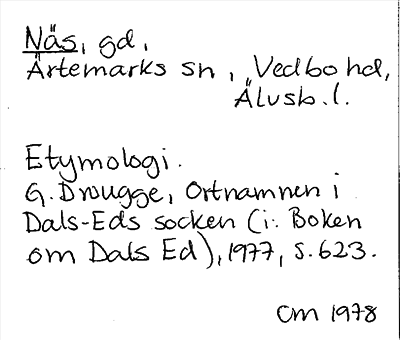 Näs, gd,
Ärtemarks sn, Vedbo hd,
Älvsb. l.
Etymologi.
G. Drougge, Ortnamnen i
Dals-Eds socken (i: Boken
om Dals Ed), 1977, s. 623.
CM 1978